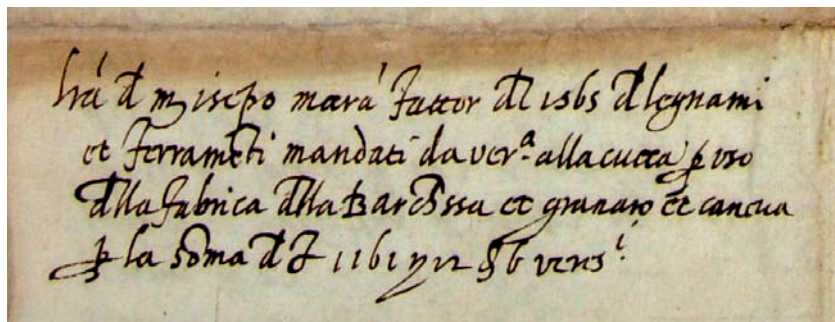 lrã d m isepo marã fattor dl 1565 d legnami
et ferramēti mandati da ver.ª alla cucca ꝑ uso
dlla fabrica dlla Barchssa et granaro et caneua
ꝑ la soma d 1161 12 6 verosⁱ.